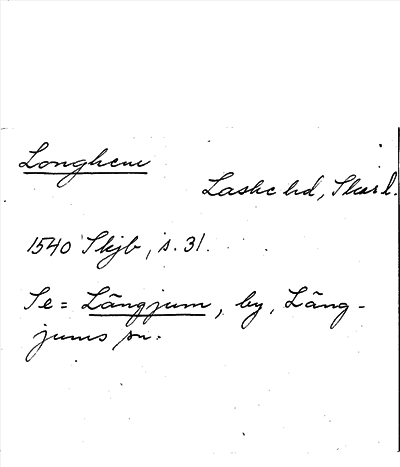 Longhem
Laske hd, Skarl.
1540 Skjb, s. 31.
Se = Långjum, by, Lång-
jums sn.